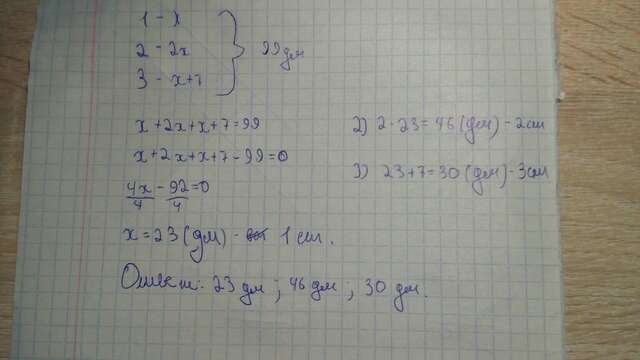 1 - x
2 - 2x
3 - x+7
99 дм
x+2x+x+7=99
x+2x+x+7-99=0
4x/4 - 92/4 =0
x=23(дм) - 1 сm.
2) 2·23=46(дм) - 2сm
3) 23+7=30(дм) - 3сm
Ответ: 23 дм ; 46 дм ; 30 дм.